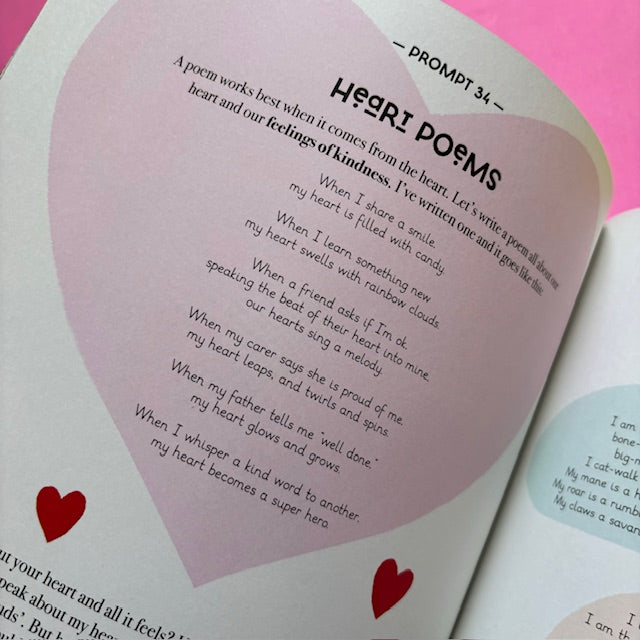 — PROMPT 34 —
HEART POEMS
A poem works best when it comes from the heart. Let's write a poem all about our
heart and our feelings of kindness. I've written one and it goes like this:
When I share a smile
my heart is filled with candy.
When I learn something new
my heart swells with rainbow clouds.
When a friend asks if I'm ok
speaking the beat of their heart into mine,
our hearts sing a melody.
When my carer says she is proud of me
my heart leaps, and twirls and spins.
When my father tells me "well done."
my heart glows and grows.
When I whisper a kind word to another.
my heart becomes a super hero.
your heart and all it feels?
speak about my
But
I am
bone-
big-
I cat-walk
My mane is a
My roar is a
My claws a
I
I am